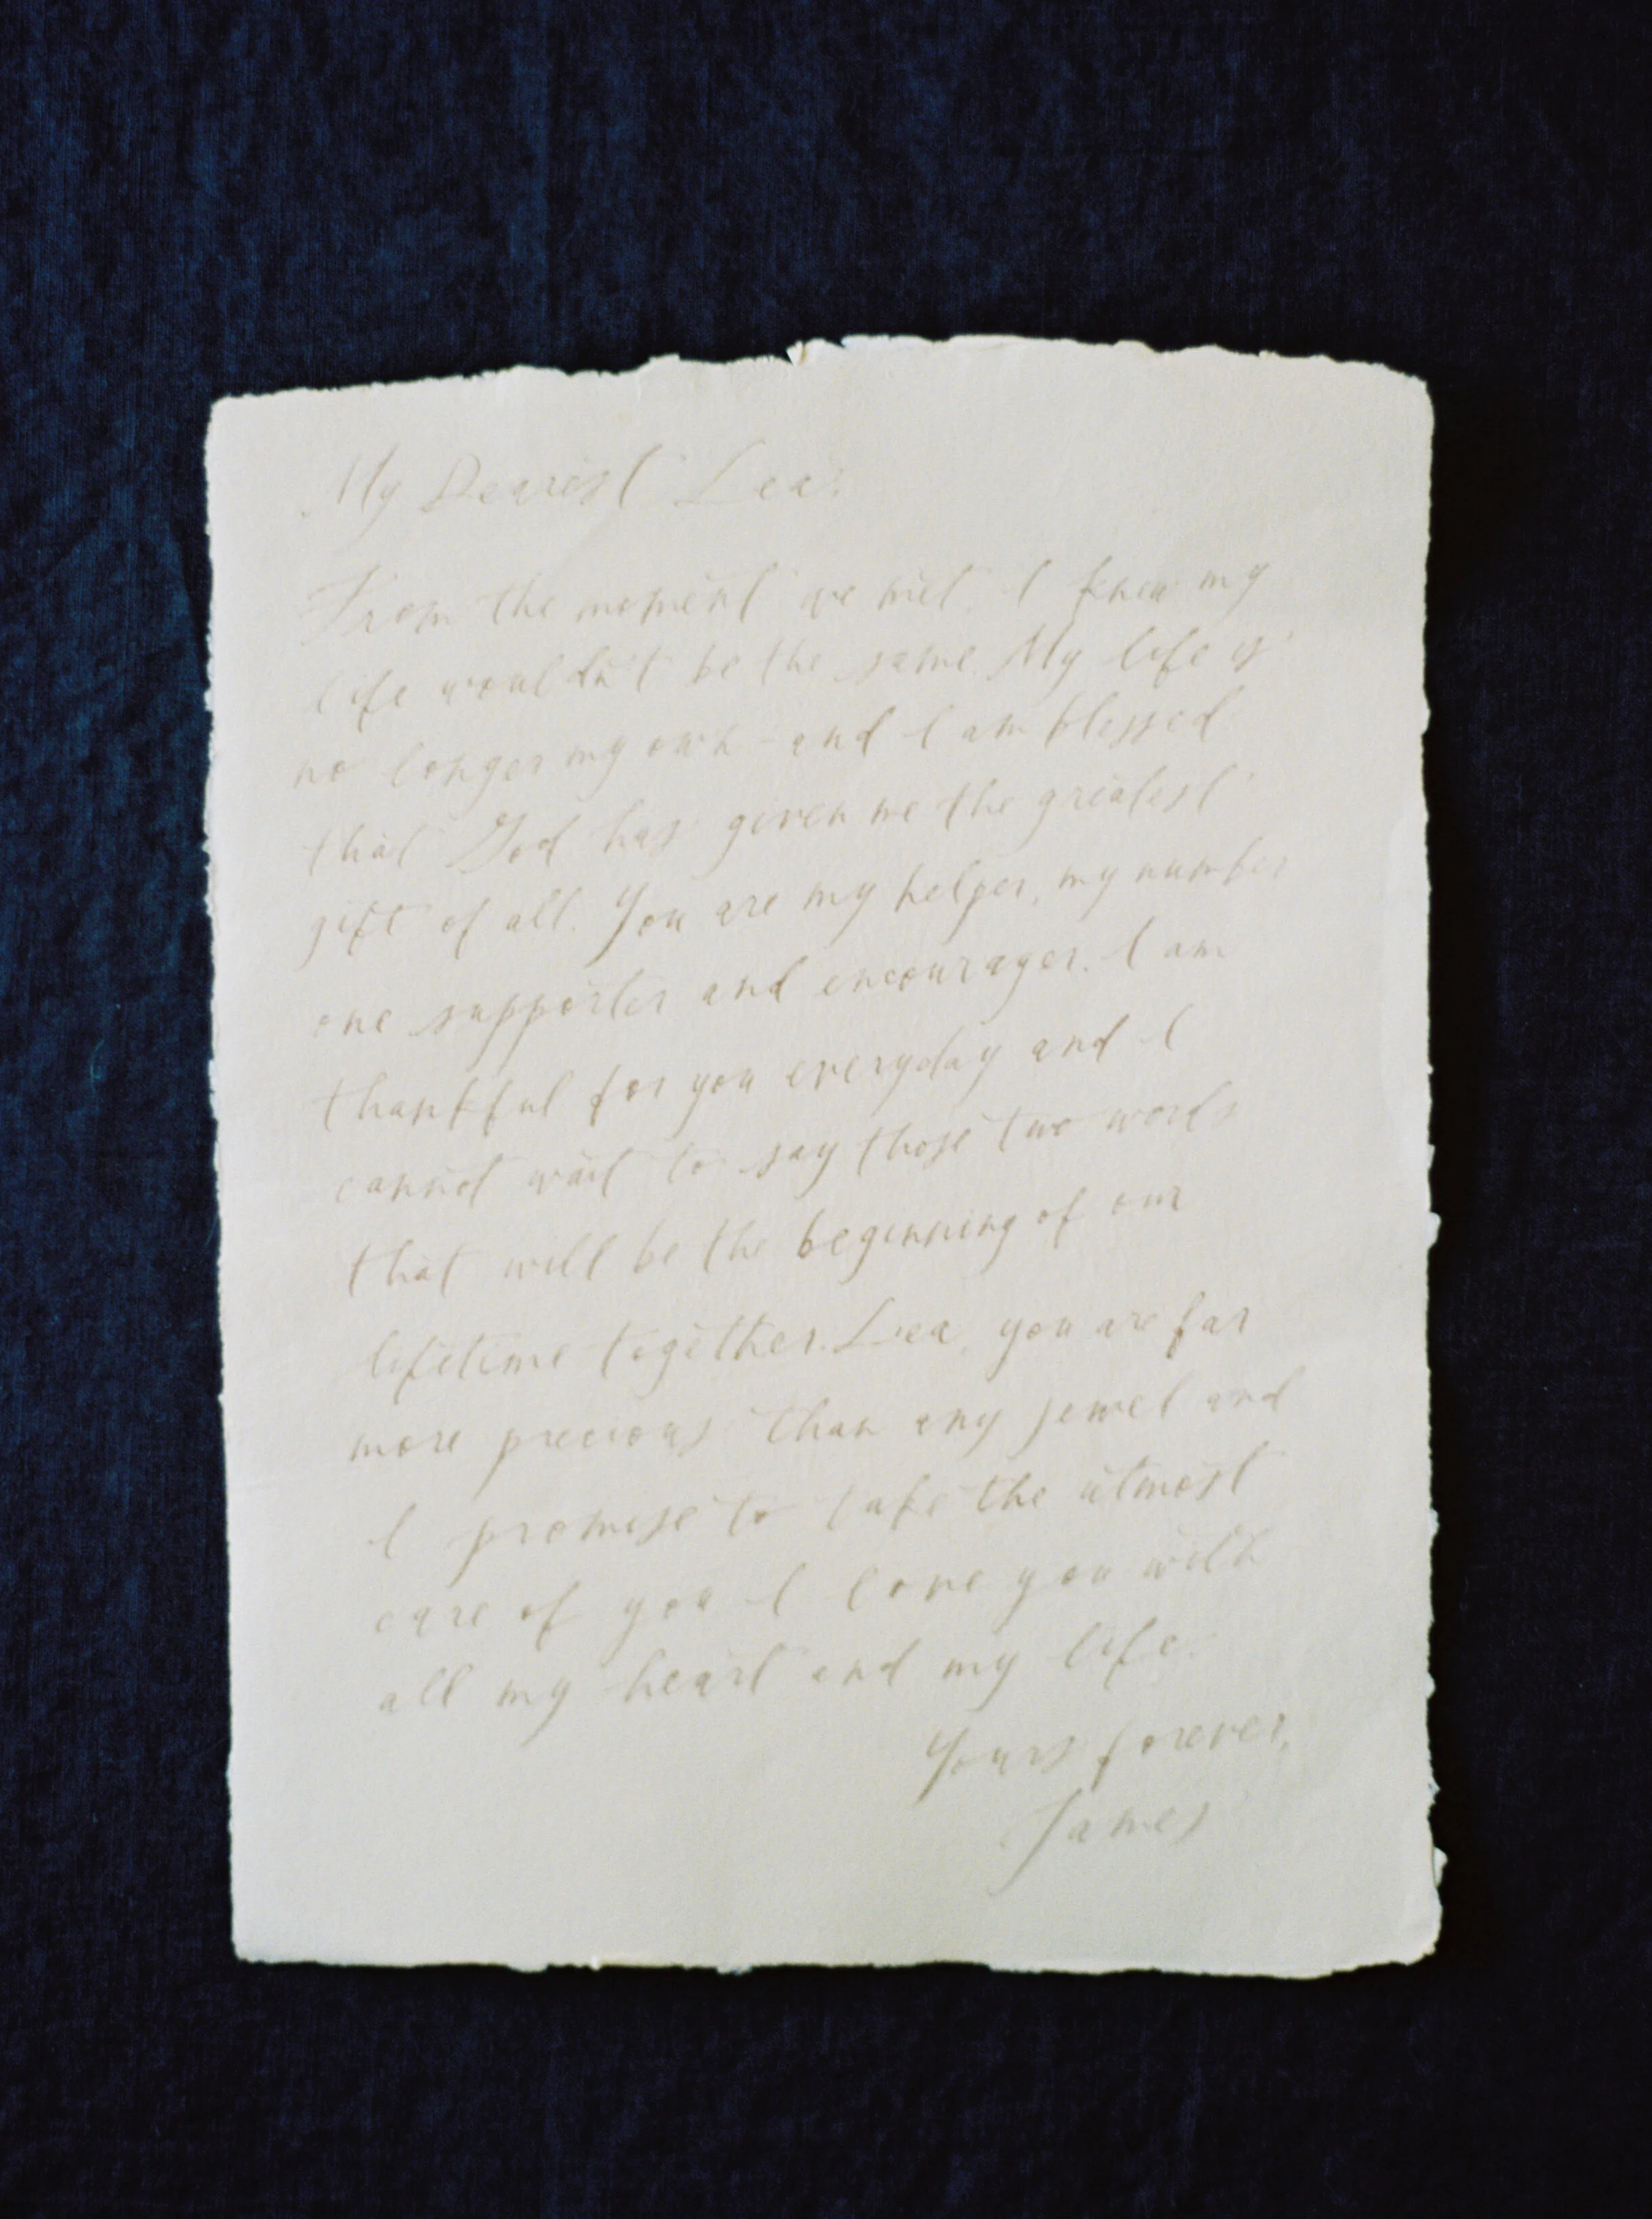 My Dearest Lea,
From the moment we met, I knew my
life wouldn't be the same. My life is
no longer my own - and I am blessed
that God has given me the greatest
gift of all. You are my helper, my number
one supporter and encourager. I am
thankful for you everyday and I
cannot wait to say those two words
that will be the beginning of our
lifetime together. Lea, you are far
more precious than any jewel and
I promise to take the utmost
care of you I love you with
all my heart and my life.
Yours forever,
James